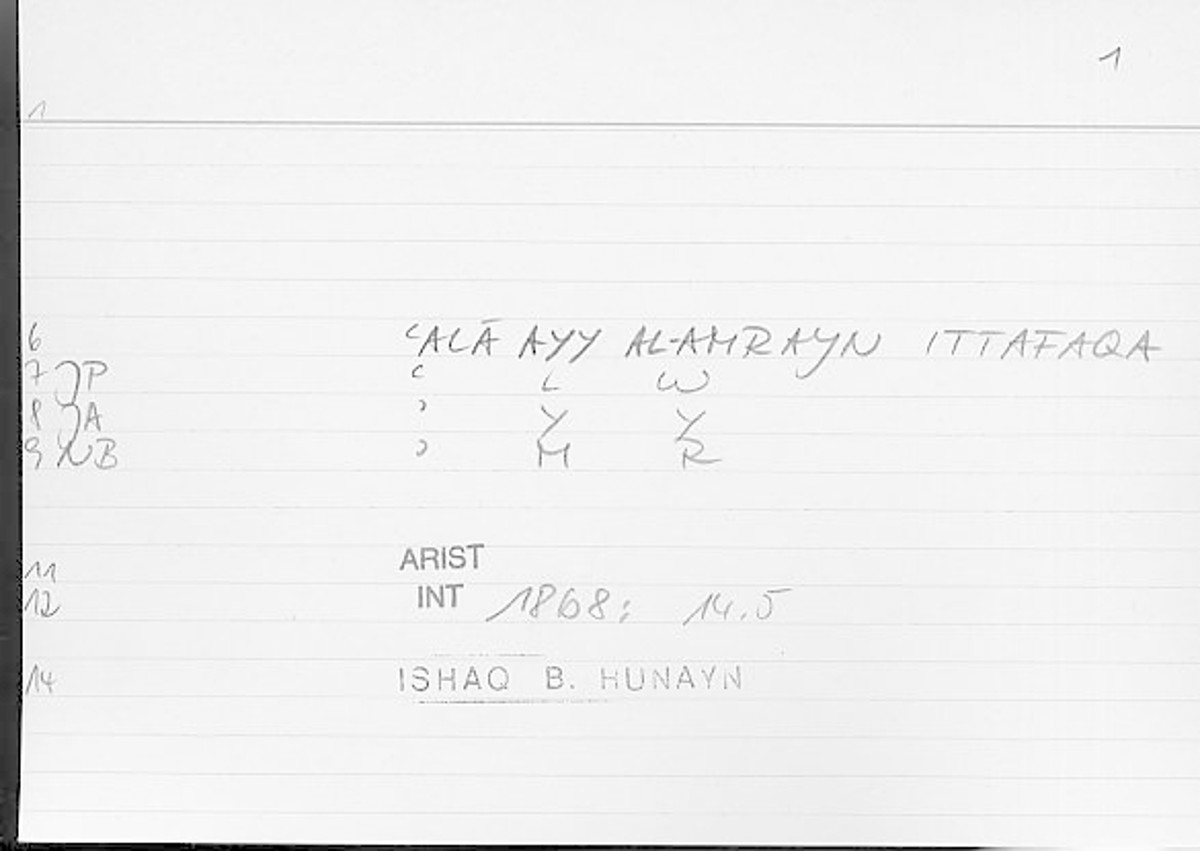 1
1
6 ʿALĀ AYY AL-AMRAYN ITTAFAQA
7 JP ʿ L W
8 JA ʾ Y Y
9 NB ʾ M R
11 ARIST
12 INT 1868; 14.5
14 ISHAQ B. HUNAYN